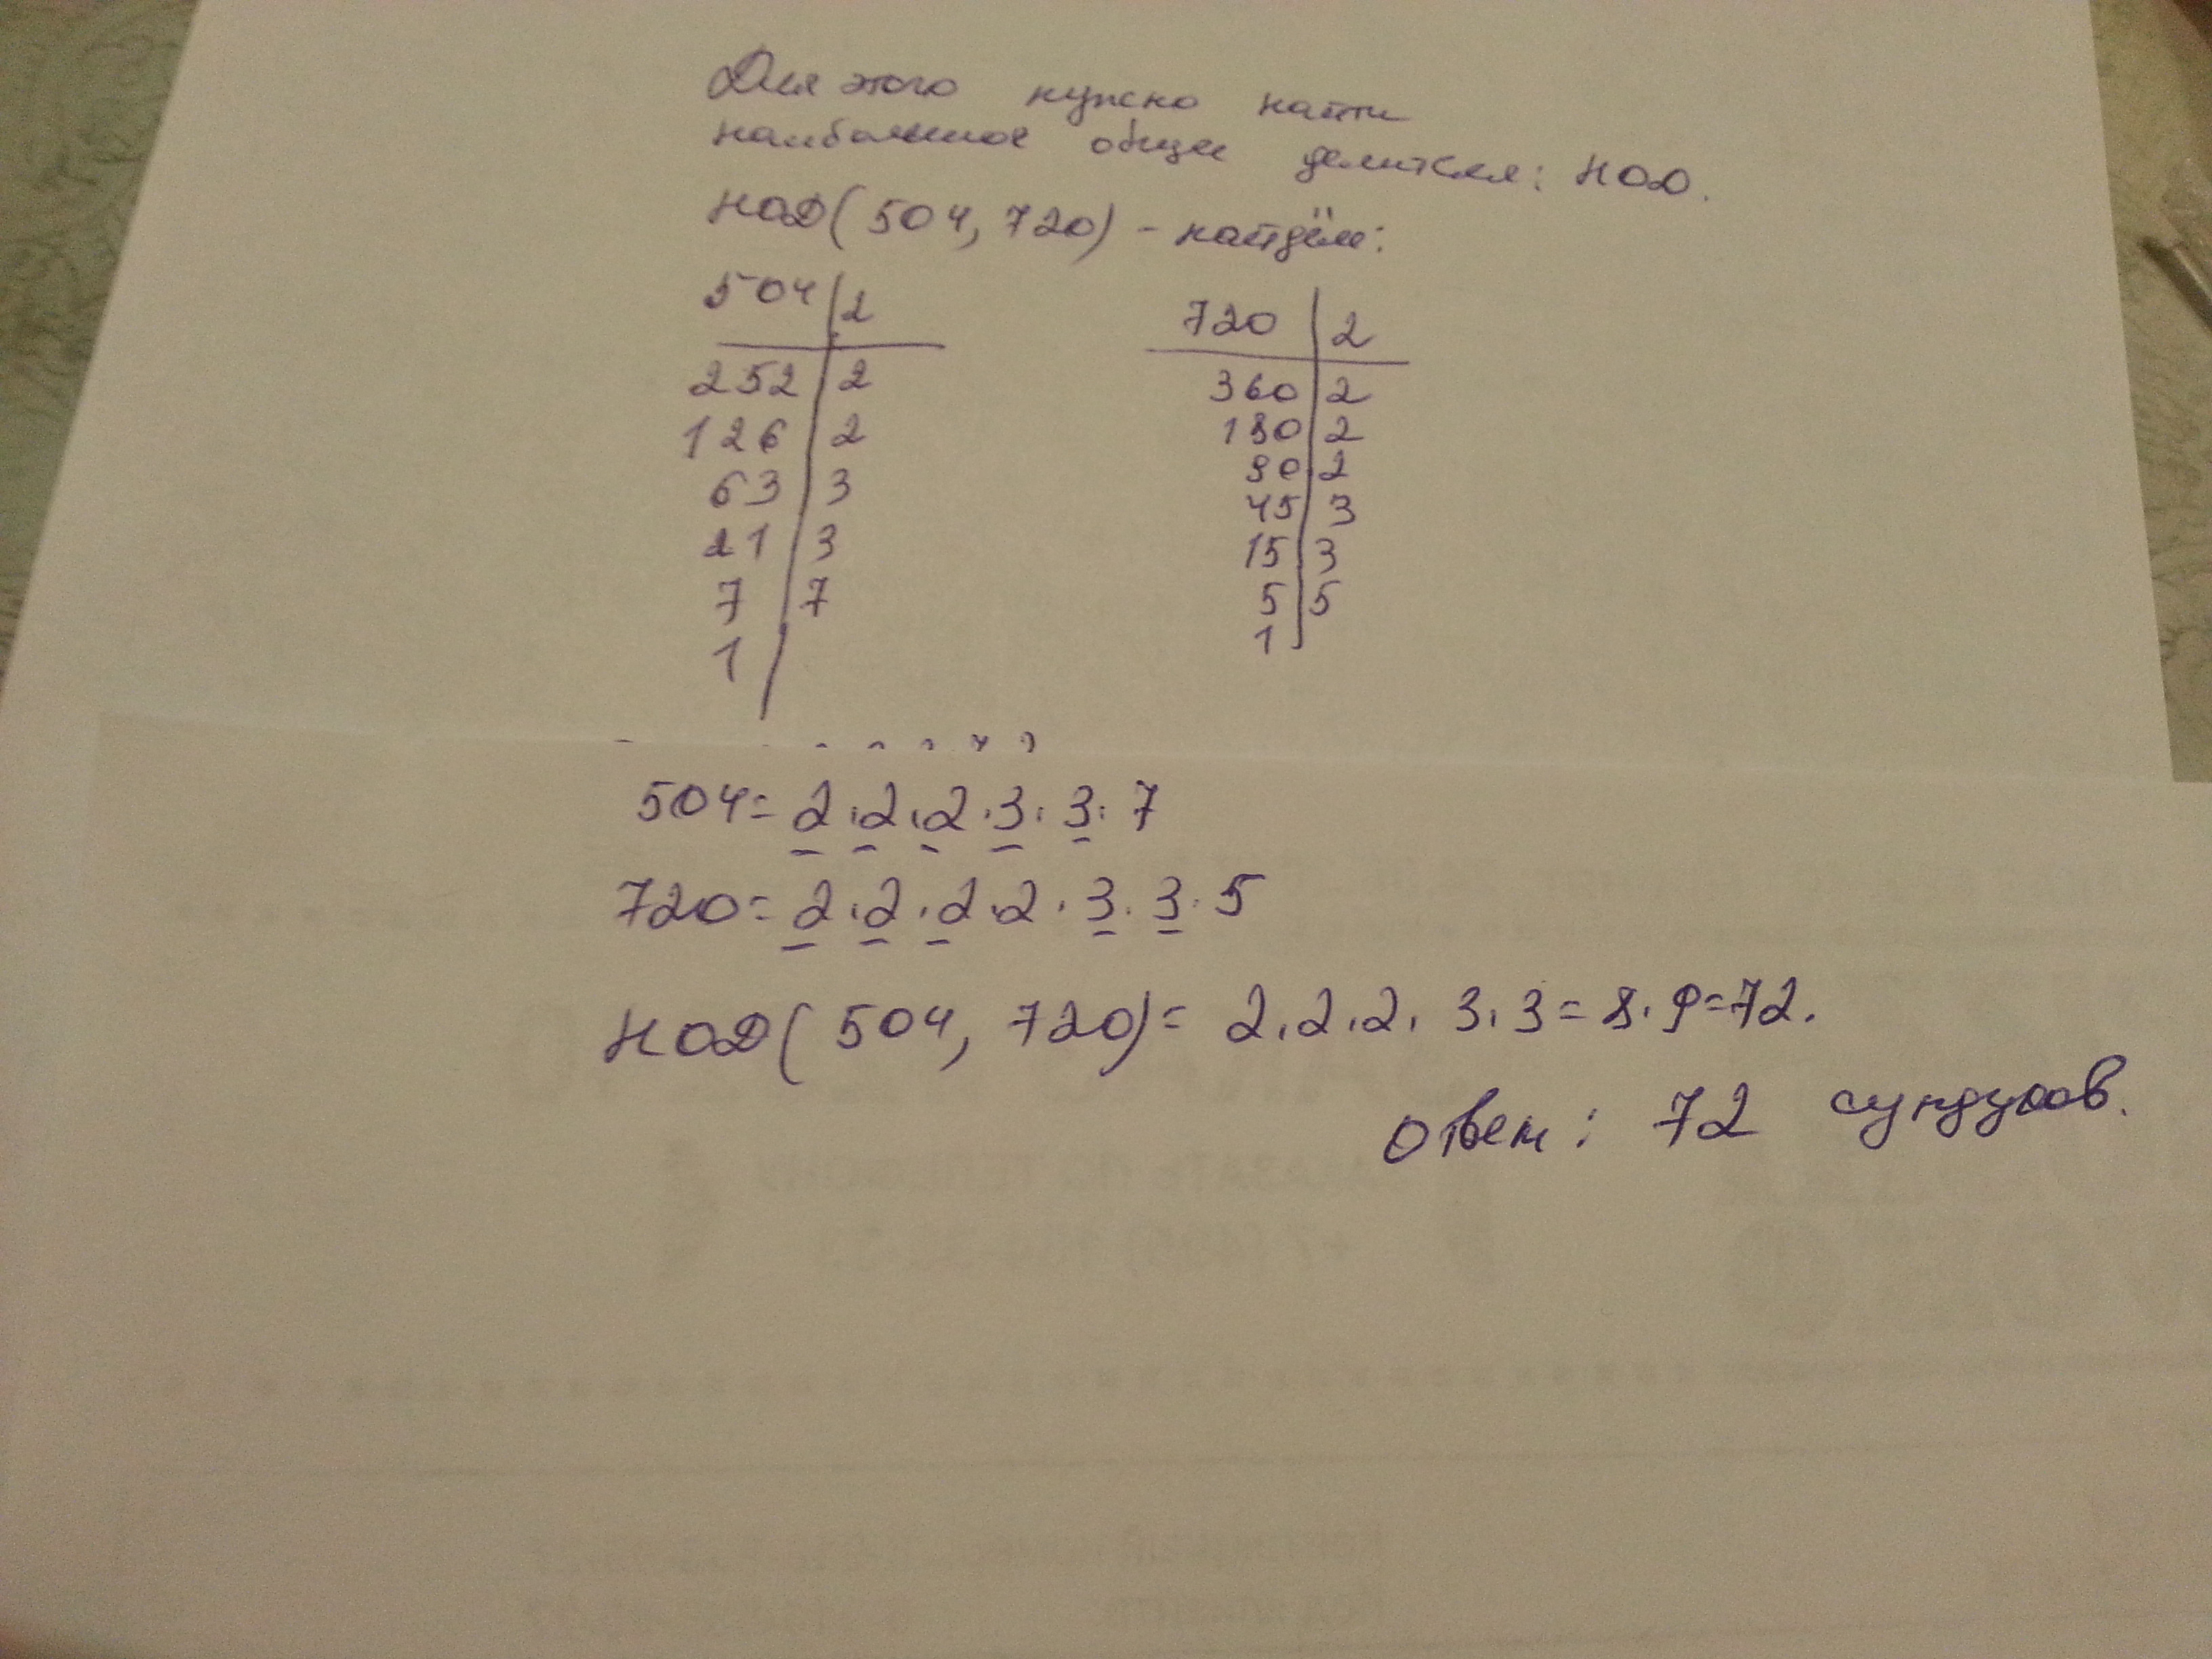 Для этого нужно найти
наибольшое общее делителя: НОД.
НОД(504, 720) - найдём:
504 | 2
252 | 2
126 | 2
63 | 3
21 | 3
7 | 7
1
720 | 2
360 | 2
180 | 2
90 2
45 3
15 3
5 5
1
504 = 2 · 2 · 2 · 3 · 3 · 7
720 = 2 · 2 · 2 · 2 · 3 · 3 · 5
НОД(504, 720) = 2 · 2 · 2 · 3 · 3 = 8 · 9 = 72.
ответ: 72 сундуков.